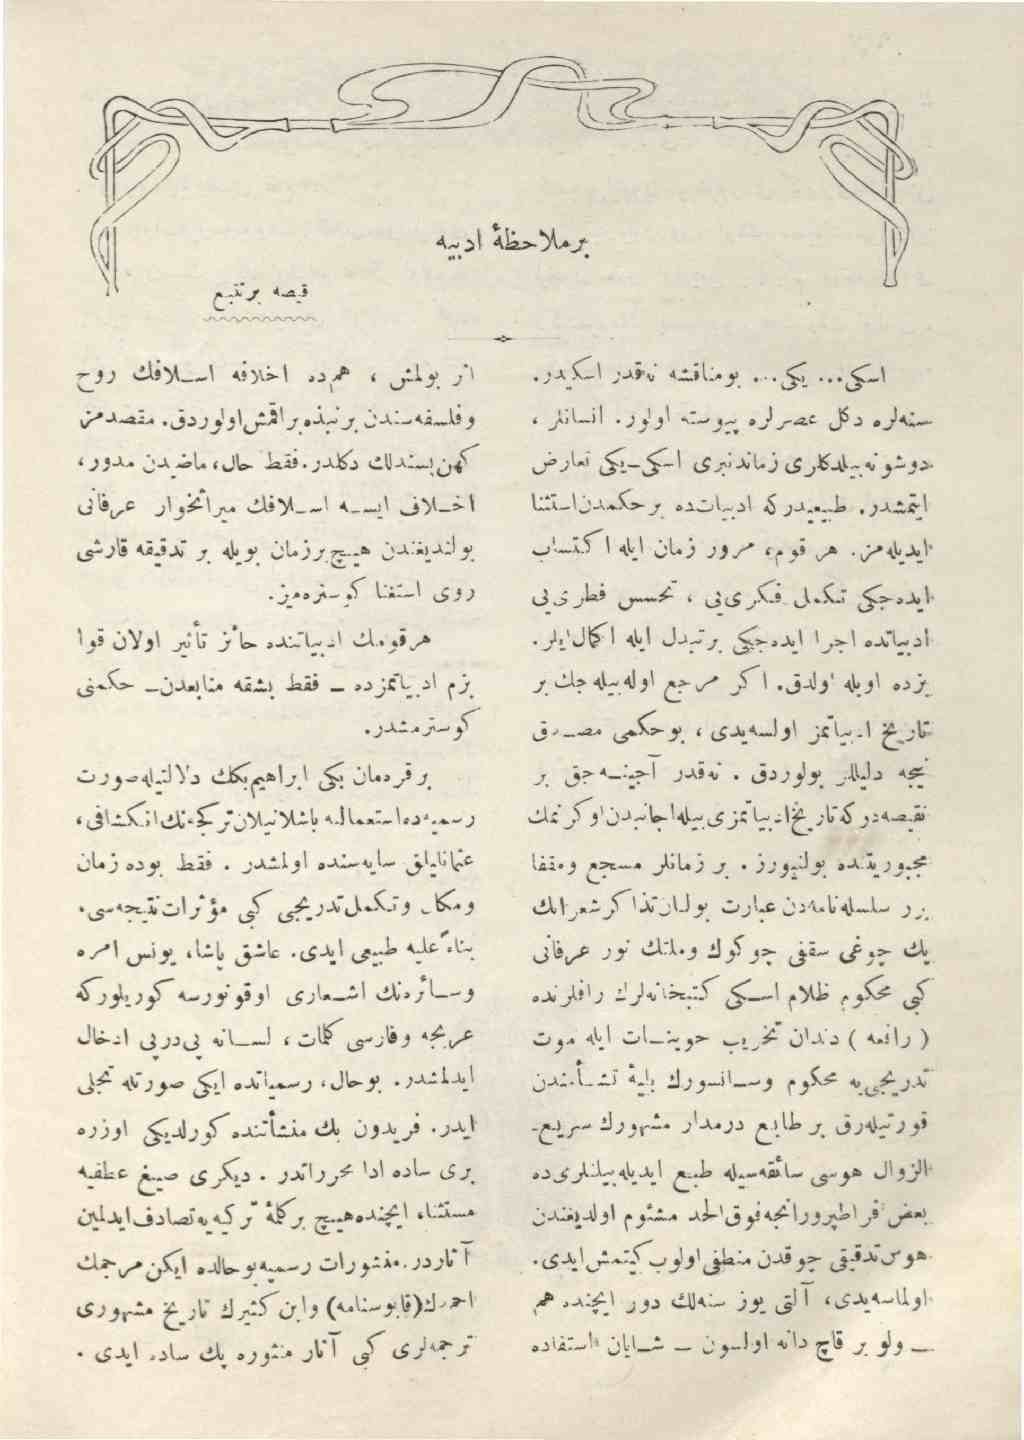 برملاحظهٔ ادبیه
قیصه برتتبع
اسکی... یکی... بومناقشه نه‌قدر اسکیدر.
سنه‌لره دکل عصرلره پیوسته اولور. انسانلر ،
دوشونه‌بیلدکلری زماندنبری اسکی-یکی تعارض
ایتمشدر. طبیعیدرکه ادبیات‌ده برحکمدن‌استثنا
ایدیله‌مز. هر قوم، مرور زمان ایله اکتساب
ایده‌جکی تکمل فکری‌یی ، تحسس فطری‌یی
ادبیاتده اجرا ایده‌جکی برتبدل ایله اکمال‌ایلر.
بزده اویله اولدق. اکر مرجع اوله‌بیله‌جك بر
تاریخ ادبیاتمز اولسه‌یدی ، بوحکمی مصدق
نیجه دلیللر بولوردق . نه‌قدر آجینه‌جق بر
نقیصه‌درکه‌تاریخ‌ادبیاتمزی‌بیله‌اجانبدن‌اوکرنمك
مجبوریتنده بولنیورز . بر زمانلر مسجع ومقفا
برر سلسله‌نامه‌دن عبارت بولنان‌تذاکرشعرانك
پك چوغی سقفی چوکوك وملتك نور عرفانی
کبی محکوم ظلام اسکی کتبخانه‌لرك رافلرنده
( رافعه ) دندان تخریب حوینات ایله موت
تدریجی‌یه محکوم وسانسورك بلیهٔ تشأمندن
قورتیله‌رق بر طابع درمدار مشهورك سریع‌-
الزوال هوسی سائقه‌سیله طبع ایدیله‌بیلنلری‌ده
بعض قراطپرورانجه‌فوق‌الحد مشئوم اولدیغندن
هوس‌تدقیقی چوقدن منطفی‌اولوب‌کیتمش‌ایدی.
اولماسه‌یدی، آلتی یوز سنه‌لك دور ایچنده هم
— ولو بر قاچ دانه اولسون — شایان استفاده
اثر بولمش ، هم‌ده اخلافه اسلافك روح
وفلسفه‌سندن برنبذه‌براقمش‌اولوردق. مقصدمز
کهن‌پسندلك دکلدر.فقط حال، ماضیدن مدور،
اخلاف ایسه اسلافك میراثخوار عرفانی
بولندیغندن هیچ‌برزمان بویله بر تدقیقه قارشی
روی استغنا کوستره‌میز.
هرقومك ادبیاتنده حائز تأثیر اولان قوا
بزم ادبیاتمزده — فقط بشقه منابعدن— حکمنی
کوسترمشدر.
برقره‌مان بکی ابراهیم‌بکك دلالتیله‌صورت
رسمیه‌ده‌استعمالنه باشلانیلان‌ترکجه‌نك‌انکشافی،
عثمانلیلق سایه‌سنده اولمشدر . فقط بوده زمان
ومکان وتکمل‌تدریجی کبی مؤثرات‌نتیجه‌سی.
بناءً علیه طبیعی ایدی. عاشق پاشا، یونس امره
وسائره‌نك اشعاری اوقونورسه کوریلورکه
عربجه وفارسی کلمات ، لسانه پی‌درپی ادخال
ایدلمشدر. بوحال، رسمیاتده ایکی صورتله تجلی
ایدر. فریدون بك منشأتنده کورلدیکی اوزره
بری ساده ادا محرراتدر . دیکری صیغ عطفیه
مستثنا، ایچنده‌هیچ برکلمهٔ ترکیه‌یه‌تصادف‌ایدلمین
آثاردر. منشورات رسمیه‌بوحالده ایکن‌مرجمك
احمدك(قابوسنامه) وابن کثیرك تاریخ مشهوری
ترجمه‌لری کبی آثار منثوره پك ساده ایدی .